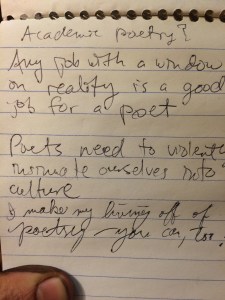 Academic poetry?
Any job with a window
on reality is a good
job for a poet
Poets need to violently
insinuate ourselves into
culture
I make my living off of
poetry - you can, too.